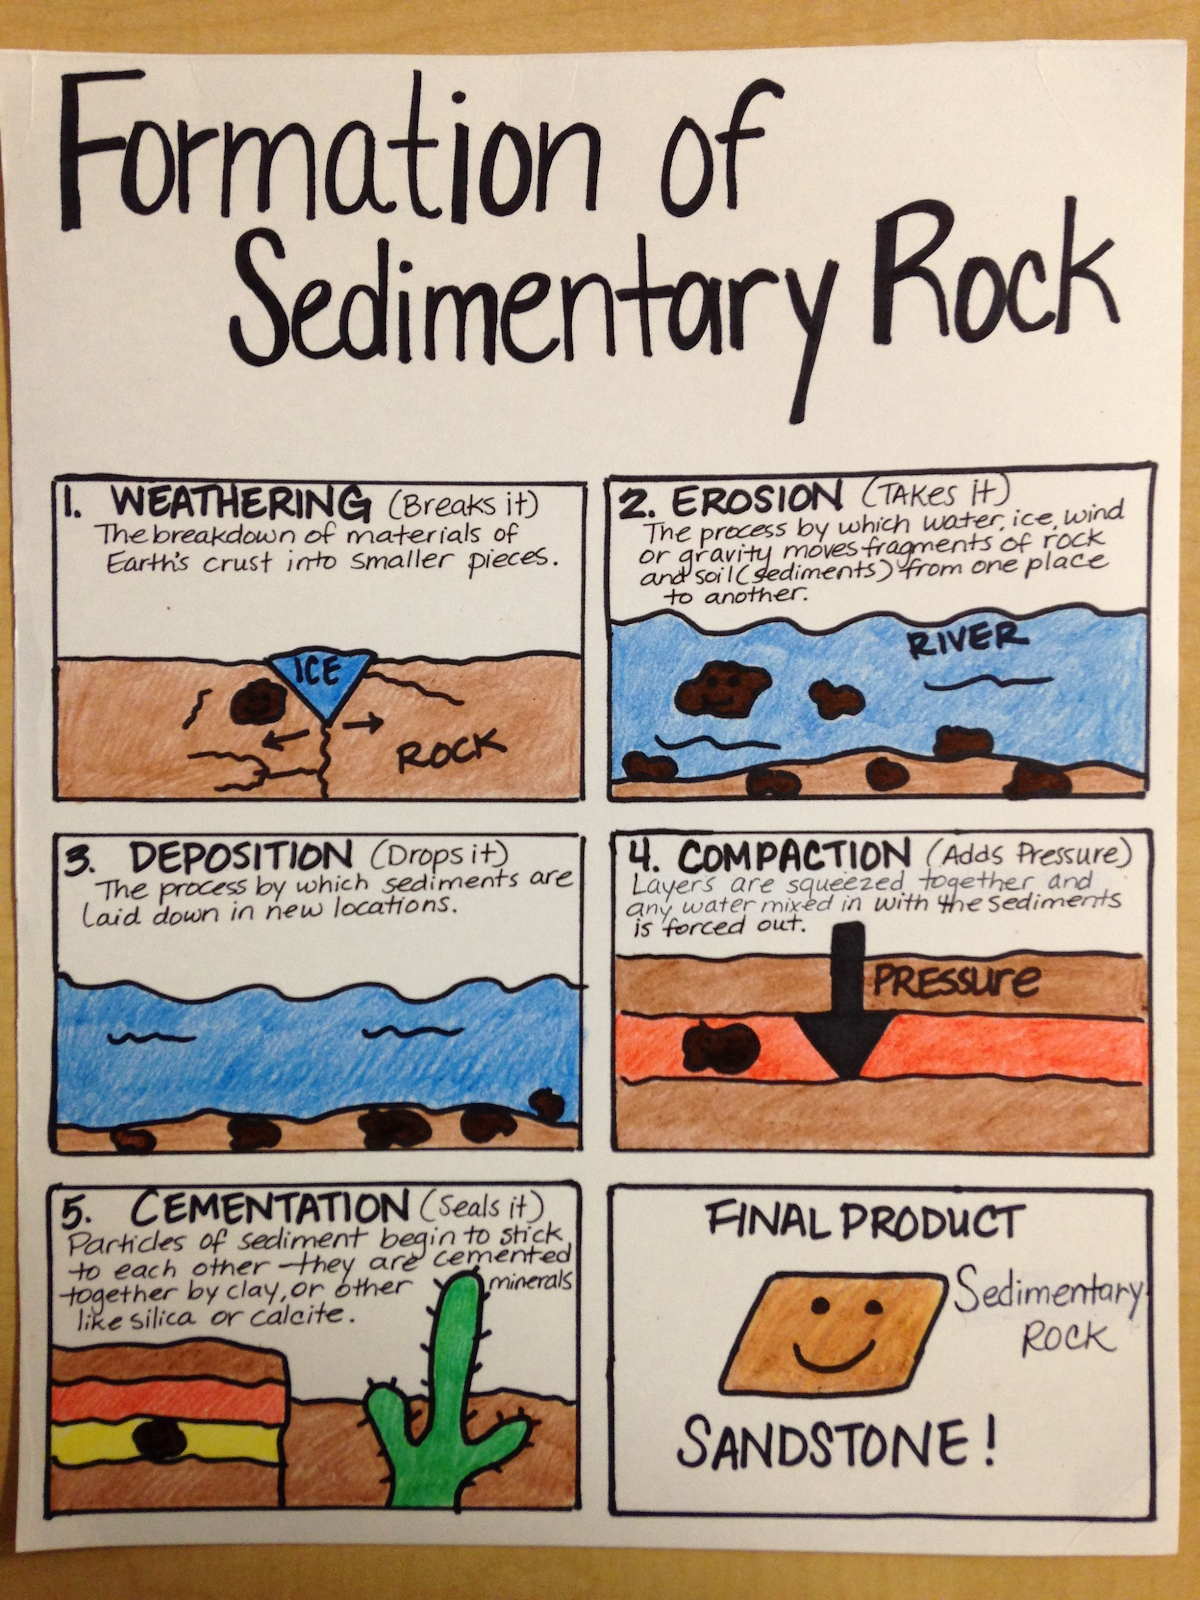 Formation of
Sedimentary Rock
1. WEATHERING (Breaks it)
The breakdown of materials of
Earth's crust into smaller pieces.
ICE
ROCK
2. EROSION (Takes it)
The process by which water, ice, wind
or gravity moves fragments of rock
and soil (sediments) from one place
to another.
RIVER
3. DEPOSITION (Drops it)
The process by which sediments are
laid down in new locations.
4. COMPACTION (Adds Pressure)
Layers are squeezed together and
any water mixed in with the sediments
is forced out.
PRESSURE
5. CEMENTATION (Seals it)
Particles of sediment begin to stick
to each other - they are cemented
together by clay, or other minerals
like silica or calcite.
FINAL PRODUCT
Sedimentary
ROCK
SANDSTONE!